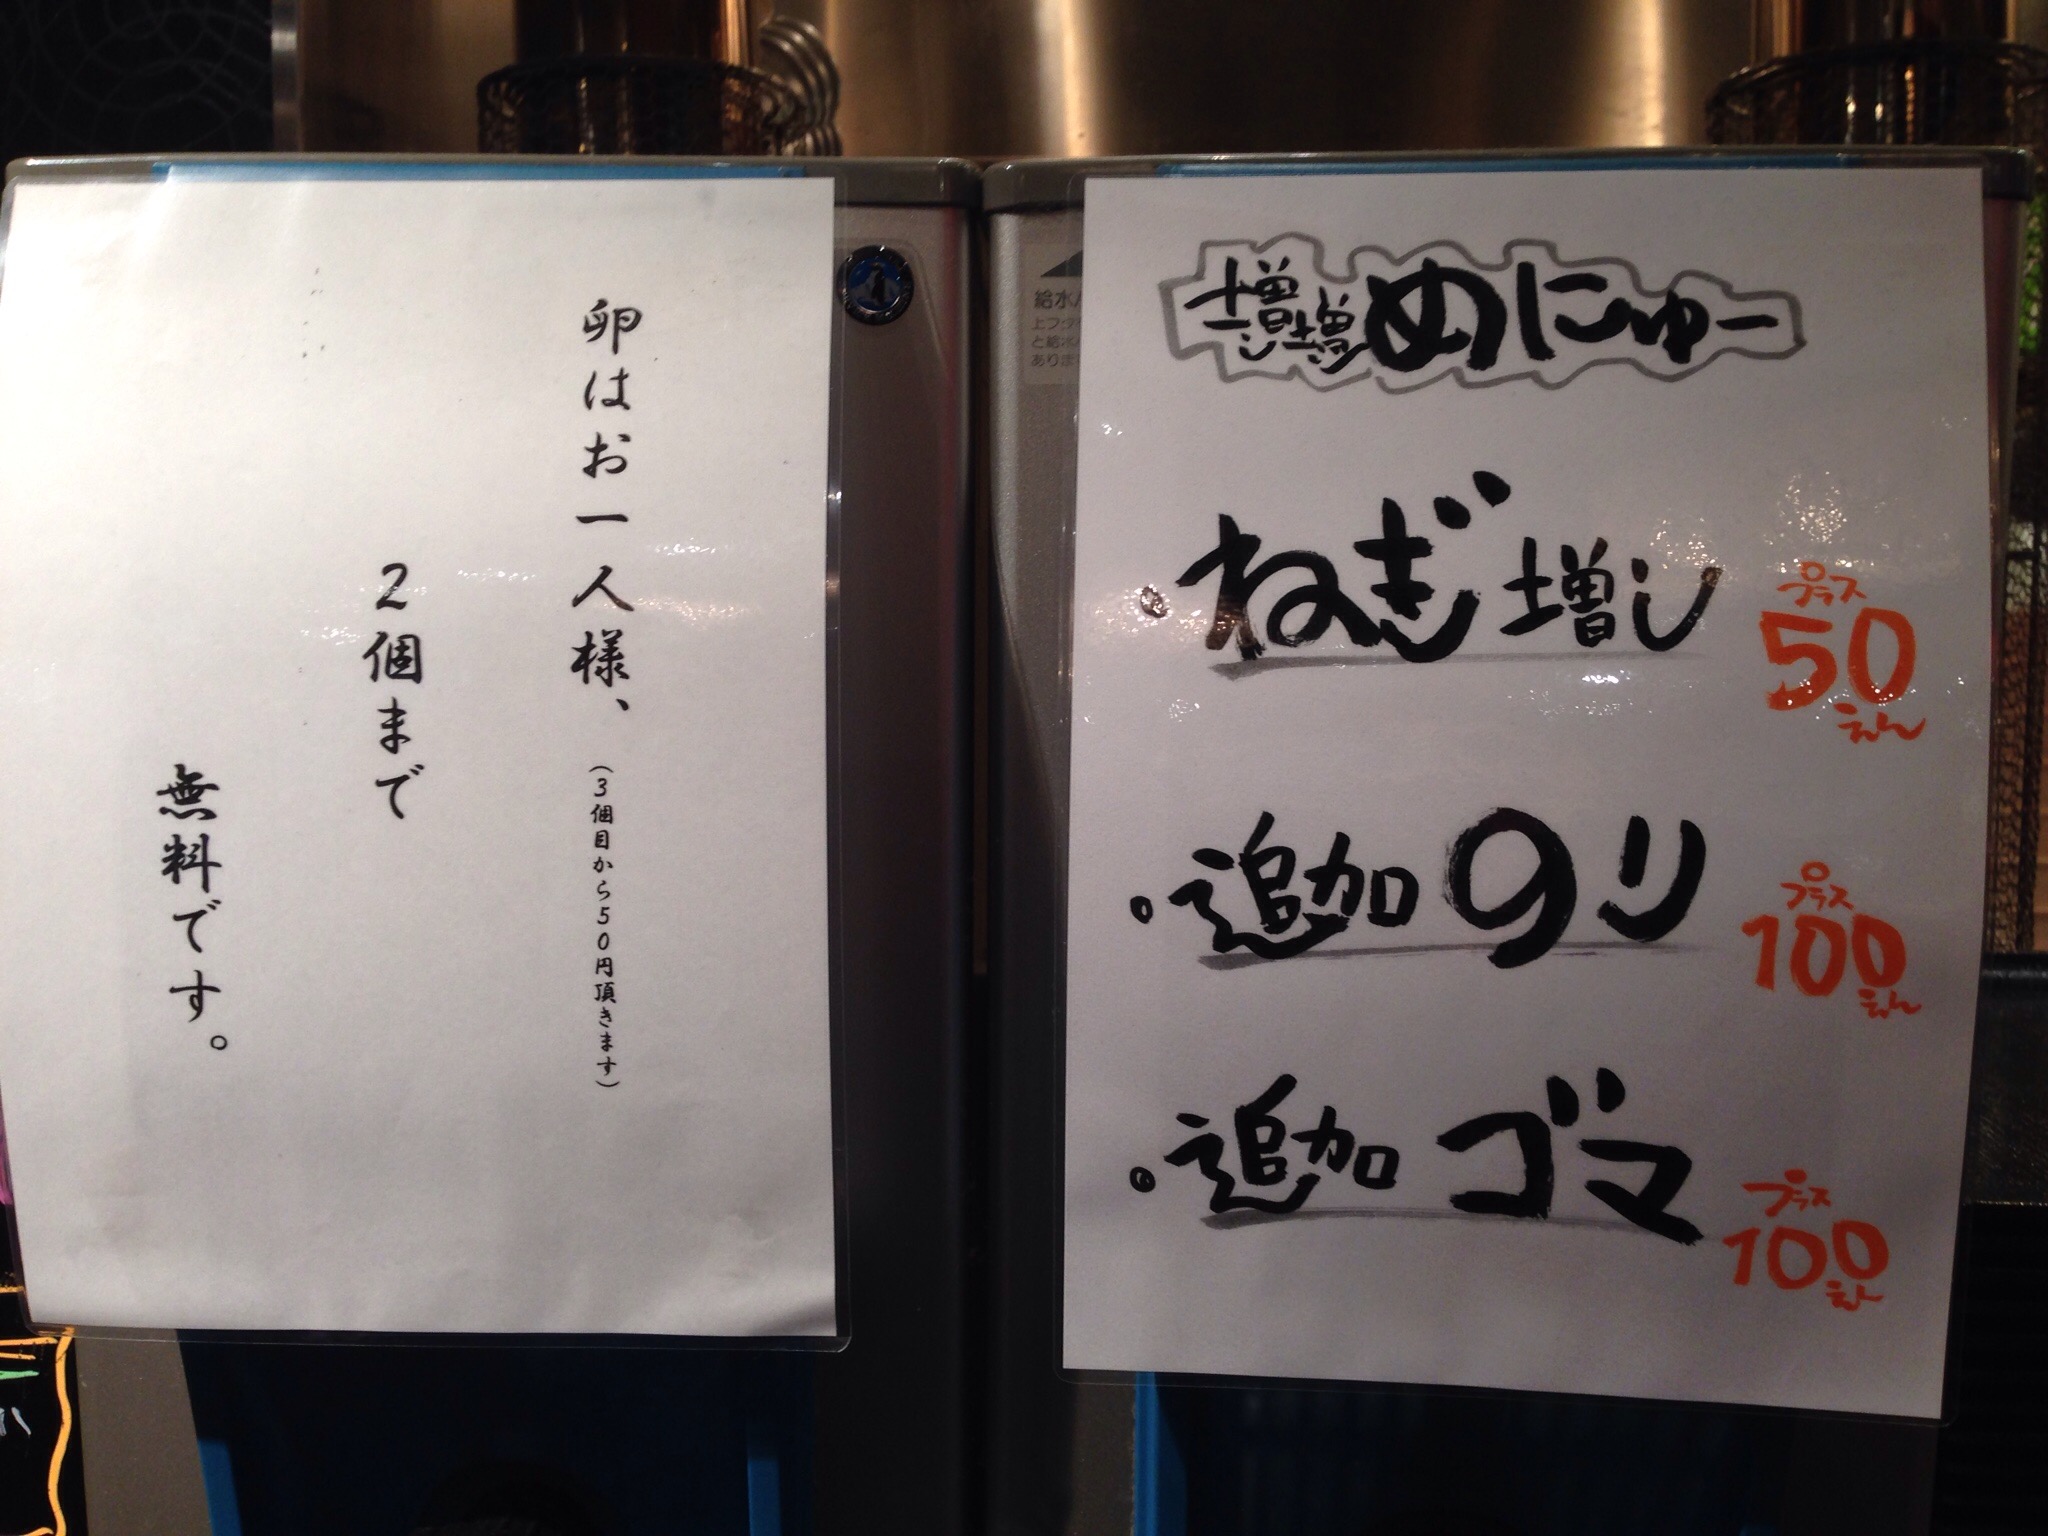 卵はお一人様、(3個目から50円頂きます)
2個まで
無料です。
増増めにゅー
・ねぎ増し プラス50えん
・追加のり プラス100えん
・追加ゴマ プラス100えん
給水
上フタ
と給水
ありま